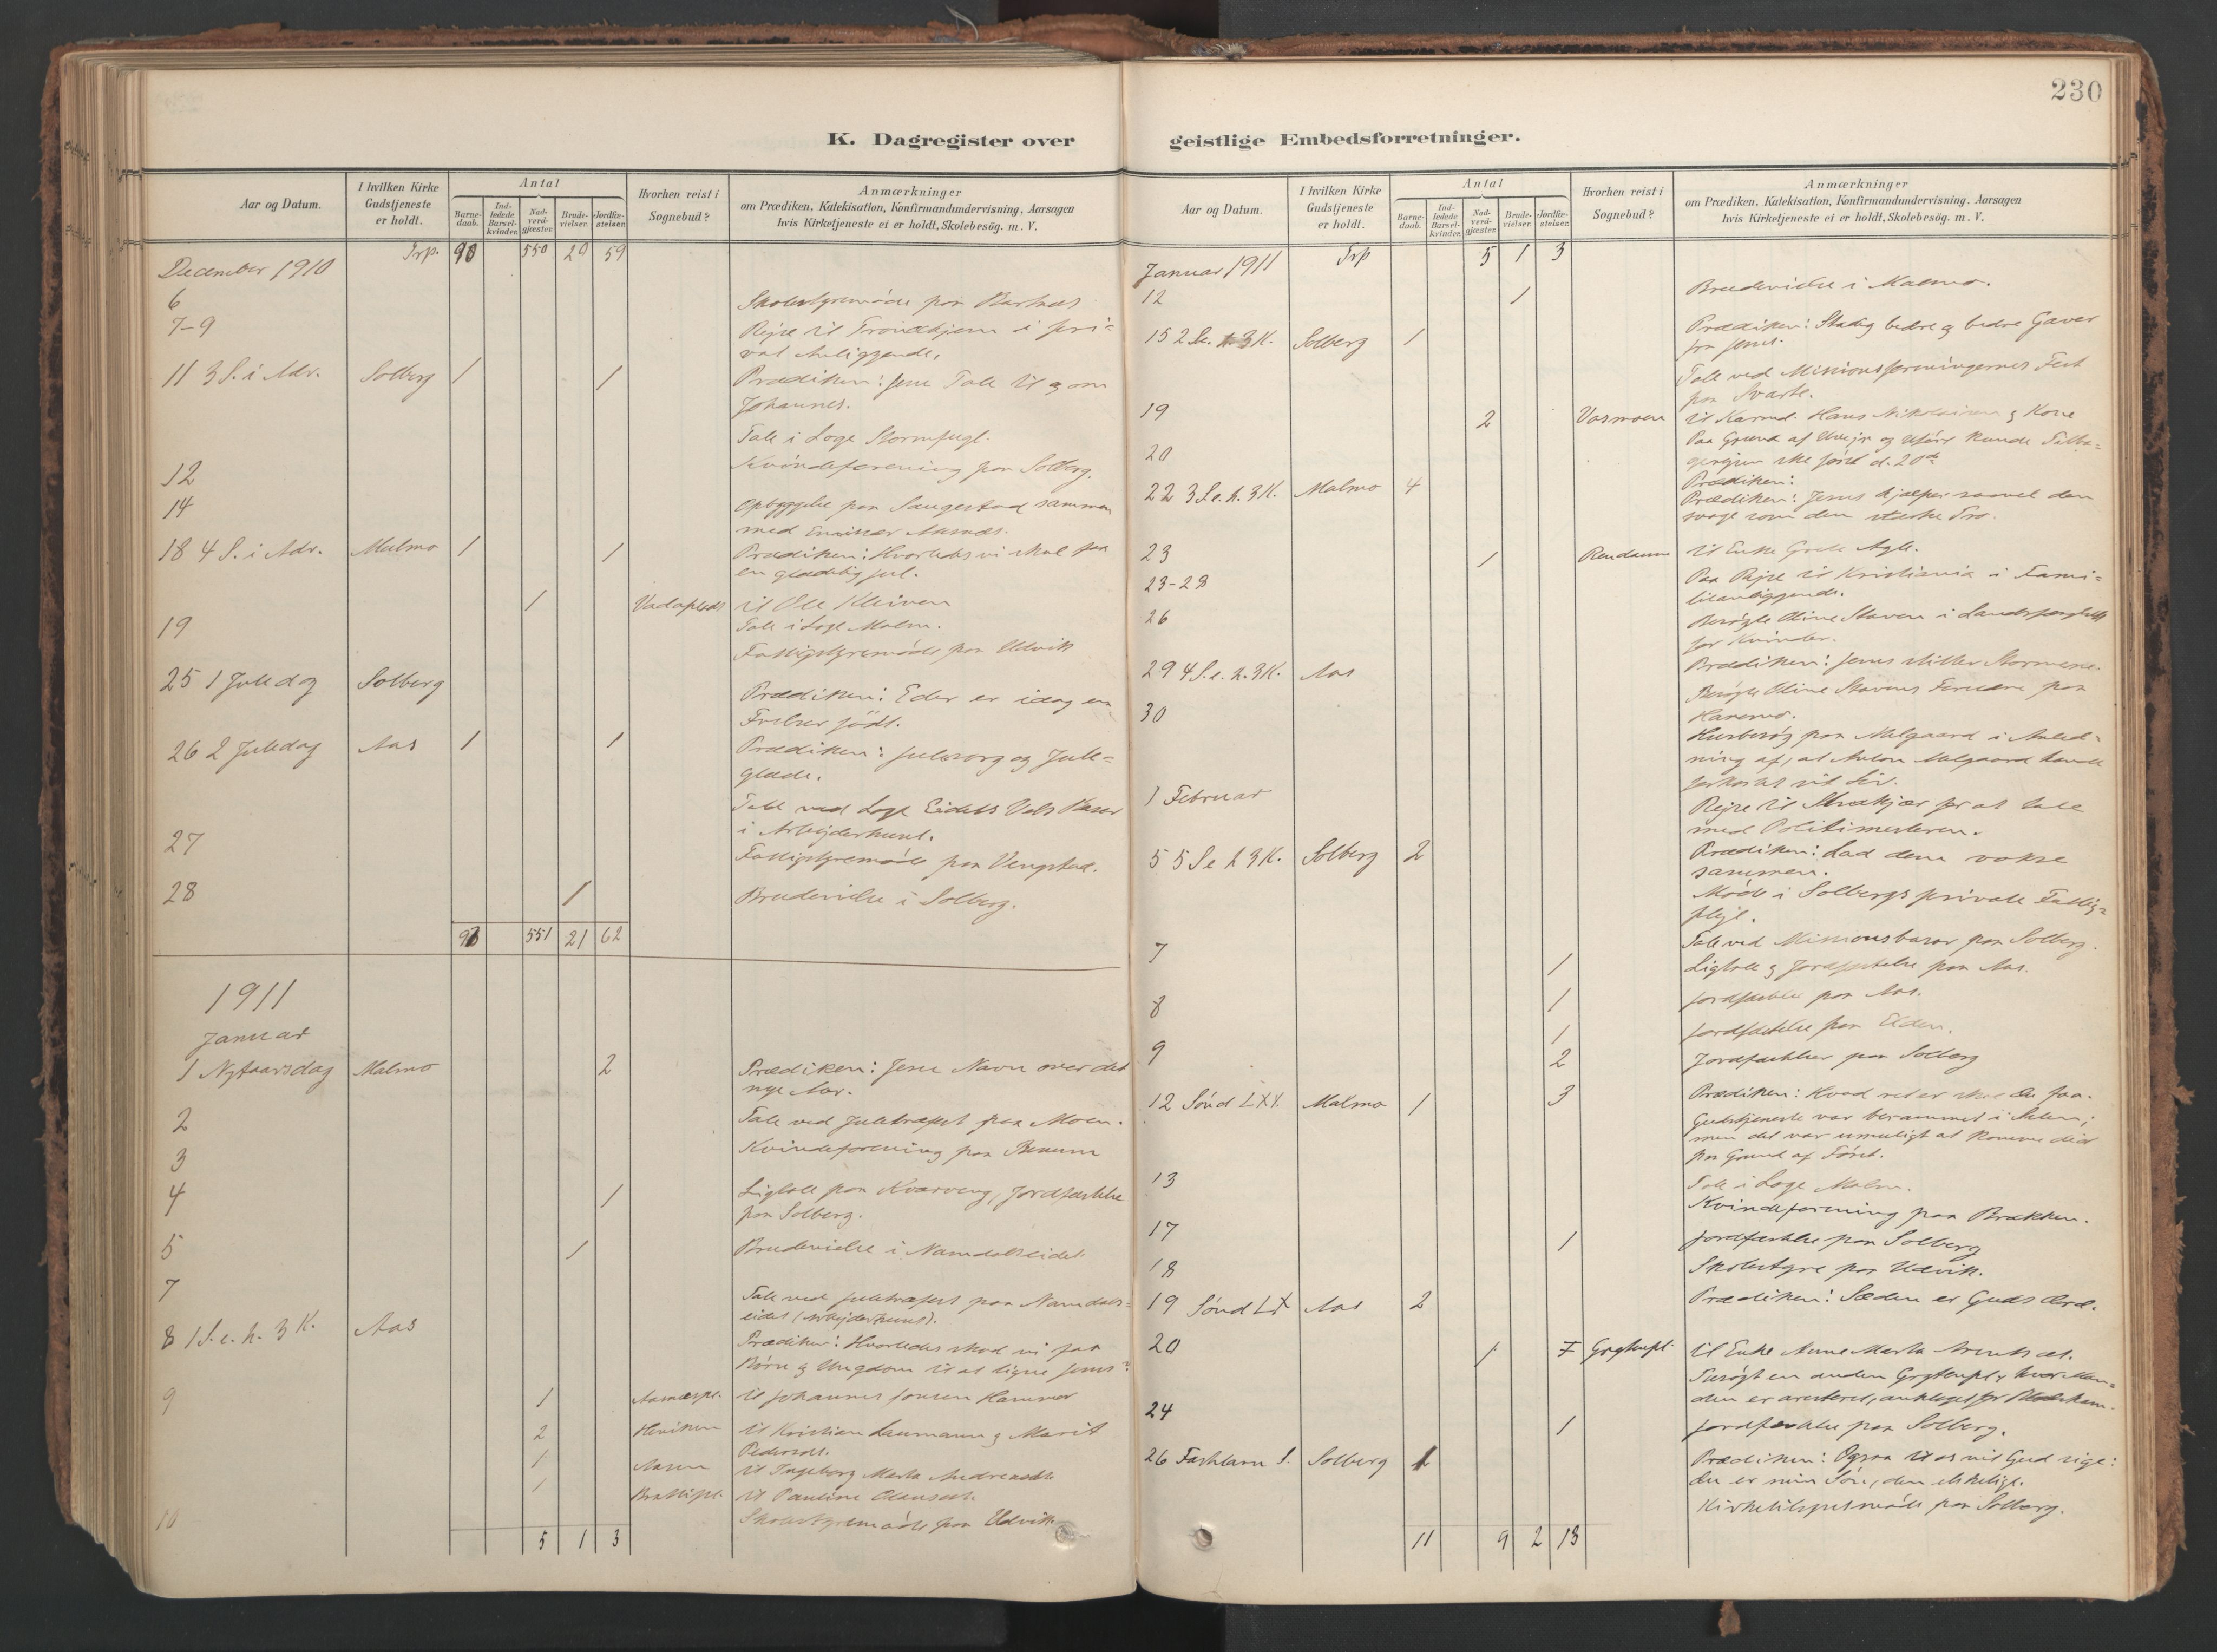 230
K. Dagregister over geistlige Embedsforretninger.
Aar og Datum.
I hvilken Kirke Gudstjeneste er holdt.
Antal
Barne-daab.
Ind-ledede Barsel-kvinder.
Nad-verd-gjæster.
Brude-vielser.
Jordfæ-stelser.
Hvorhen reist i Sognebud?
Anmærkninger
om Prædiken, Katekisation, Konfirmandundervisning, Aarsagen
hvis Kirketjeneste ei er holdt, Skolebesøg. m. V.
December 1910 Trp. 90 550 20 59
6 Skolestyremöde paa
7-9 Rejse til Trondhjem i pri-
vat Anliggende.
11 3 S. i Adv. Solberg 1 1 Prædiken: Jesu Tale til og om
Johannes.
Tale i Loge Stormfugl.
12 Kvindeforening paa Solberg.
14 Opbyggelse paa sammen
med
18 4 S. i Adv. Malmo 1 1 Prædiken: Hvorledes vi skal faa
en glædelig Jul.
1 til Ole Kleiven
19 Tale i Loge Malm.
Fattigstyremöde paa Udvik
25 1 Juledag Solberg Prædiken: Eder er idag en
Frelser född.
26 2 Juledag Aas 1 1 Prædiken: Julesorg og Jule-
glæde.
Tale ved Loge Eidets Vels Basar
i Arbejderhuset.
27 Fattigstyremöde paa Vengstad.
28 1 Brudevielse i Solberg.
551 21 62
1911
Januar
1 Nytaarsdag Malmo 2 Prædiken: Jesu Navn over det
nye Aar.
2 Tale ved Juletræfest paa Moen.
3 Kvindeforening paa Benum
4 1 Ligtale paa Kværveng, Jordfæstelse
paa Solberg.
5 1 Brudevielse i Namdalseidet
7 Tale ved Juletræfest paa Namdals-
eidet (Arbejderhuset).
8 1 S. e. h. 3 K. Aas Prædiken: Hvorledes skal vi faa
Börn og Ungdom til at ligne Jesus?
9 1 til Johannes Jonsen Hammer
2 til Kristian Laumann og Marit
Pedersdt.
1 Aasen til Ingeborg Marta Andreasdt.
1 til Pauline Olausdt.
10 Skolestyremöde paa Udvik
5 1 3
Aar og Datum.
I hvilken Kirke Gudstjeneste er holdt.
Antal
Barne-daab.
Ind-ledede Barsel-kvinder.
Nad-verd-gjæster.
Brude-vielser.
Jordfæ-stelser.
Hvorhen reist i Sognebud?
Anmærkninger
om Prædiken, Katekisation, Konfirmandundervisning, Aarsagen
hvis Kirketjeneste ei er holdt, Skolebesøg. m. V.
Januar 1911 Trp 5 1 3
12 1 Brudevielse i Malmo.
15 2 S. e. h. 3 K. Solberg 1 Prædiken: Stadig bedre og bedre Gaver
fra Jesus.
Tale ved Missionsforeningernes Fest
paa Svarte.
19 2 Vasmoen til Karmd. Hans Nikolaisen og Kone
20 Paa Grund af Uvejr og Uföre kunde Tilba-
gerejsen ske först d. 20de
22 3 S. e. h. 3 K. Malmo 4 Prædiken:
Prædiken: Jesus hjælper saavel den
svage som den sterke Tro.
23 1 til Enke Grete Agle.
23-28 Paa Rejse til Kristiania i Fami-
lieanliggende.
26 Besögte Oline Staven i Landsfængslet
for Kvinder.
29 4 S. e. h. 3 K. Aas Prædiken: Jesus stiller Stormene.
30 Besögte Oline Stavens Forældre paa
Husbesög paa Melgaard i Anled-
ning af, at Anton Melgaard havde
forkortet sit Liv.
1 Februar Rejse til Stenkjær for at tale
med Politimesteren.
5 5 S e h 3 K. Solberg 2 Prædiken: Lad dem vokse
sammen.
Möde i Solbergs private Fattig-
pleje.
7 Tale ved Missionsbasar paa Solberg.
1 Ligtale og Jordfæstelse paa Aas.
8 1 Jordfæstelse paa Aas.
1 Jordfæstelse paa Elden.
9 2 Jordfæstelser paa Solberg
12 Sönd LXX. Malmo 1 3 Prædiken: Hvad ret er skal du faa.
Gudstjeneste var berammet i ;
men det var umuligt at komme did
paa Grund af Föret.
13 Tale i Loge Malm.
Kvindeforening paa Brækken.
17 1 Jordfæstelse paa Solberg
18 Skolestyre paa Udvik.
19 Sönd LX Aas 2 Prædiken: Sæden er Guds Ord.
20 1 til Enke Anne Marta
en anden hvor Man-
den er arresteret, anklaget for
24 1 Jordfæstelse paa Solberg.
26 Fastelavn S. Solberg 1 Prædiken: Ogsaa til os vil Gud sige:
du er min Sön, den elskelige.
Kirketilsynsmöde paa Solberg.
11 9 2 13